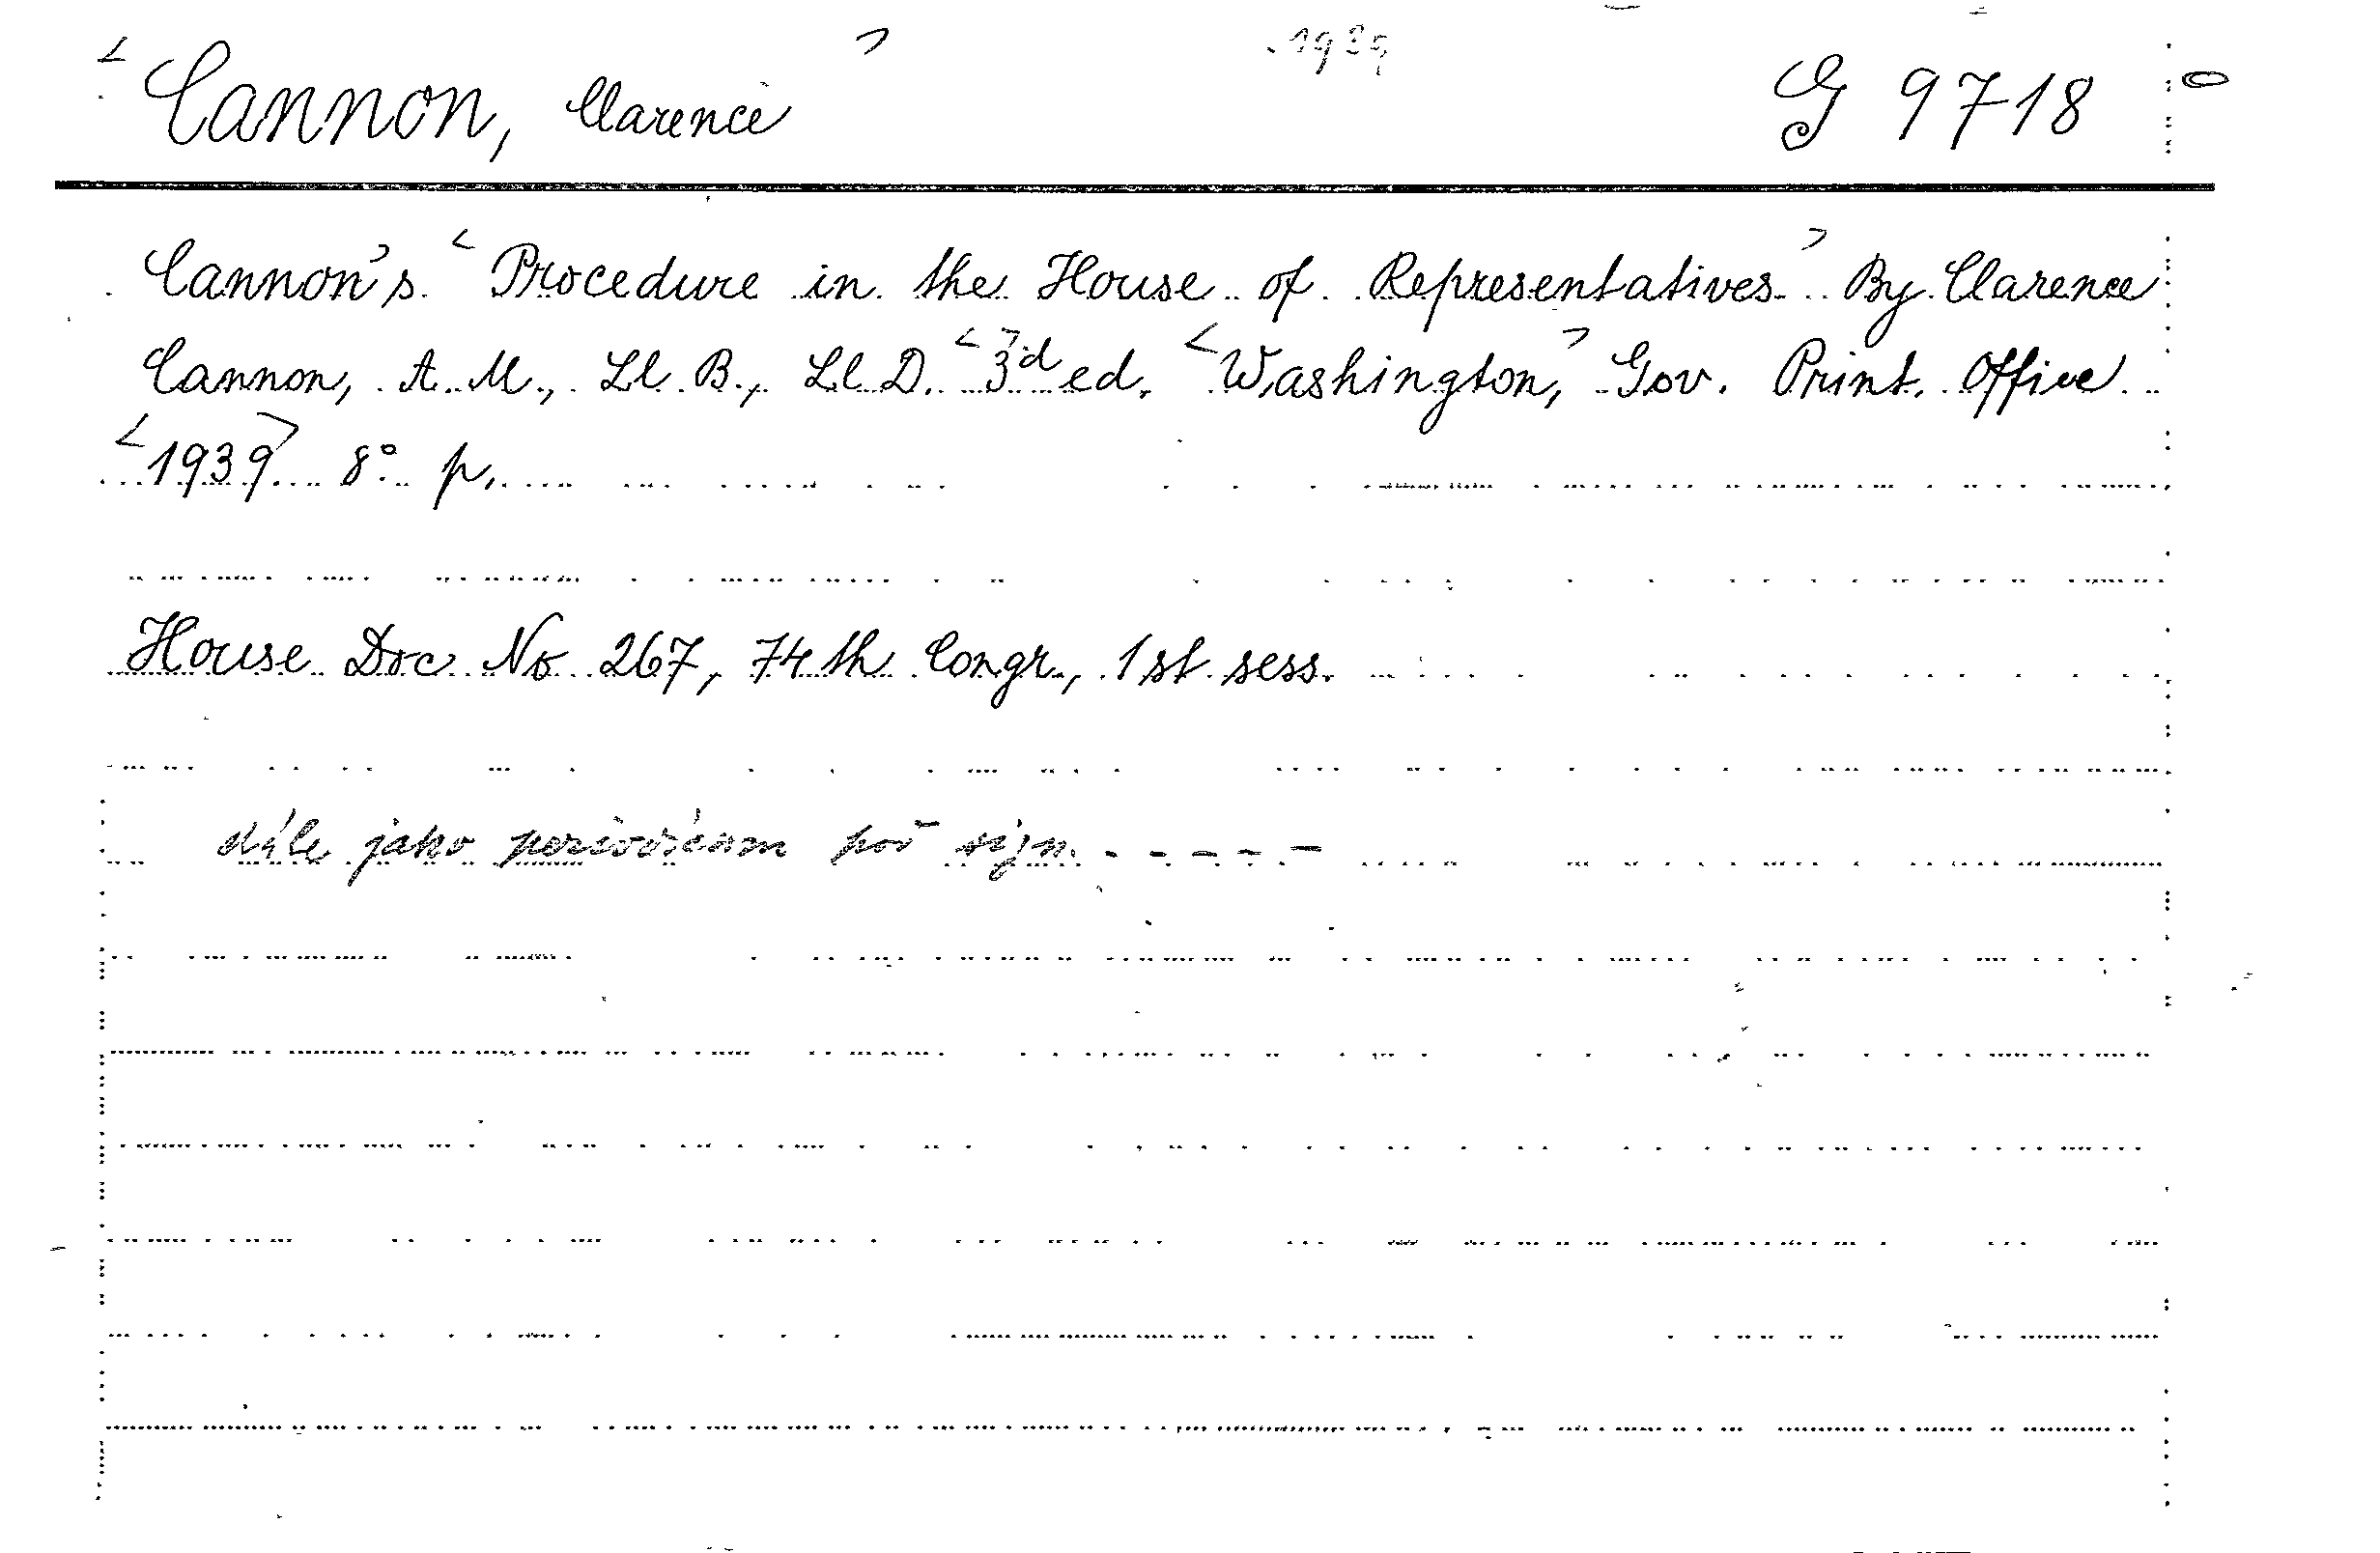 Cannon, Clarence 1939 G 9718
Cannon's Procedure in the House of Representatives. By Clarence
Cannon, A. M., Ll. B., Ll. D. 3d ed. Washington, Gov. Print. Office
1939 8° p.
House Doc No 267, 74th Congr., 1st sess.
dále jako periodicum pod sign. - - - - -